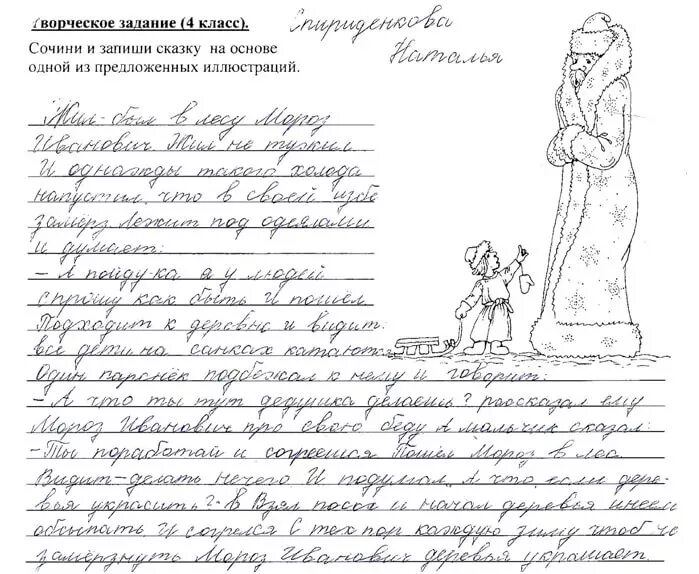 Творческое задание (4 класс).
Сочини и запиши сказку на основе
одной из предложенных иллюстраций.
Спириденкова
Наталья
Жил-был в лесу Мороз
Иванович Жил не тужил
И однажды такого холода
напустил, что в своей избе
замёрз Лежит под одеялами
и думает:
- А пойду-ка я у людей
спрошу как быть И пошёл
Подходит к деревне и видит:
все дети на санках катаются
Один паренёк подбежал к нему и говорит:
- А что ты тут дедушка делаешь? рассказал ему
Мороз Иванович про свою беду А мальчик сказал:
- Ты поработай и согреешся Пошёл Мороз в лес
Видит-делать нечего И подумал А что если дере-
вья украсить? - Взял посох и начал деревья инеем
обсыпать И согрелся С тех пор каждую зиму чтоб не
замёрзнуть Мороз Иванович деревья украшает.